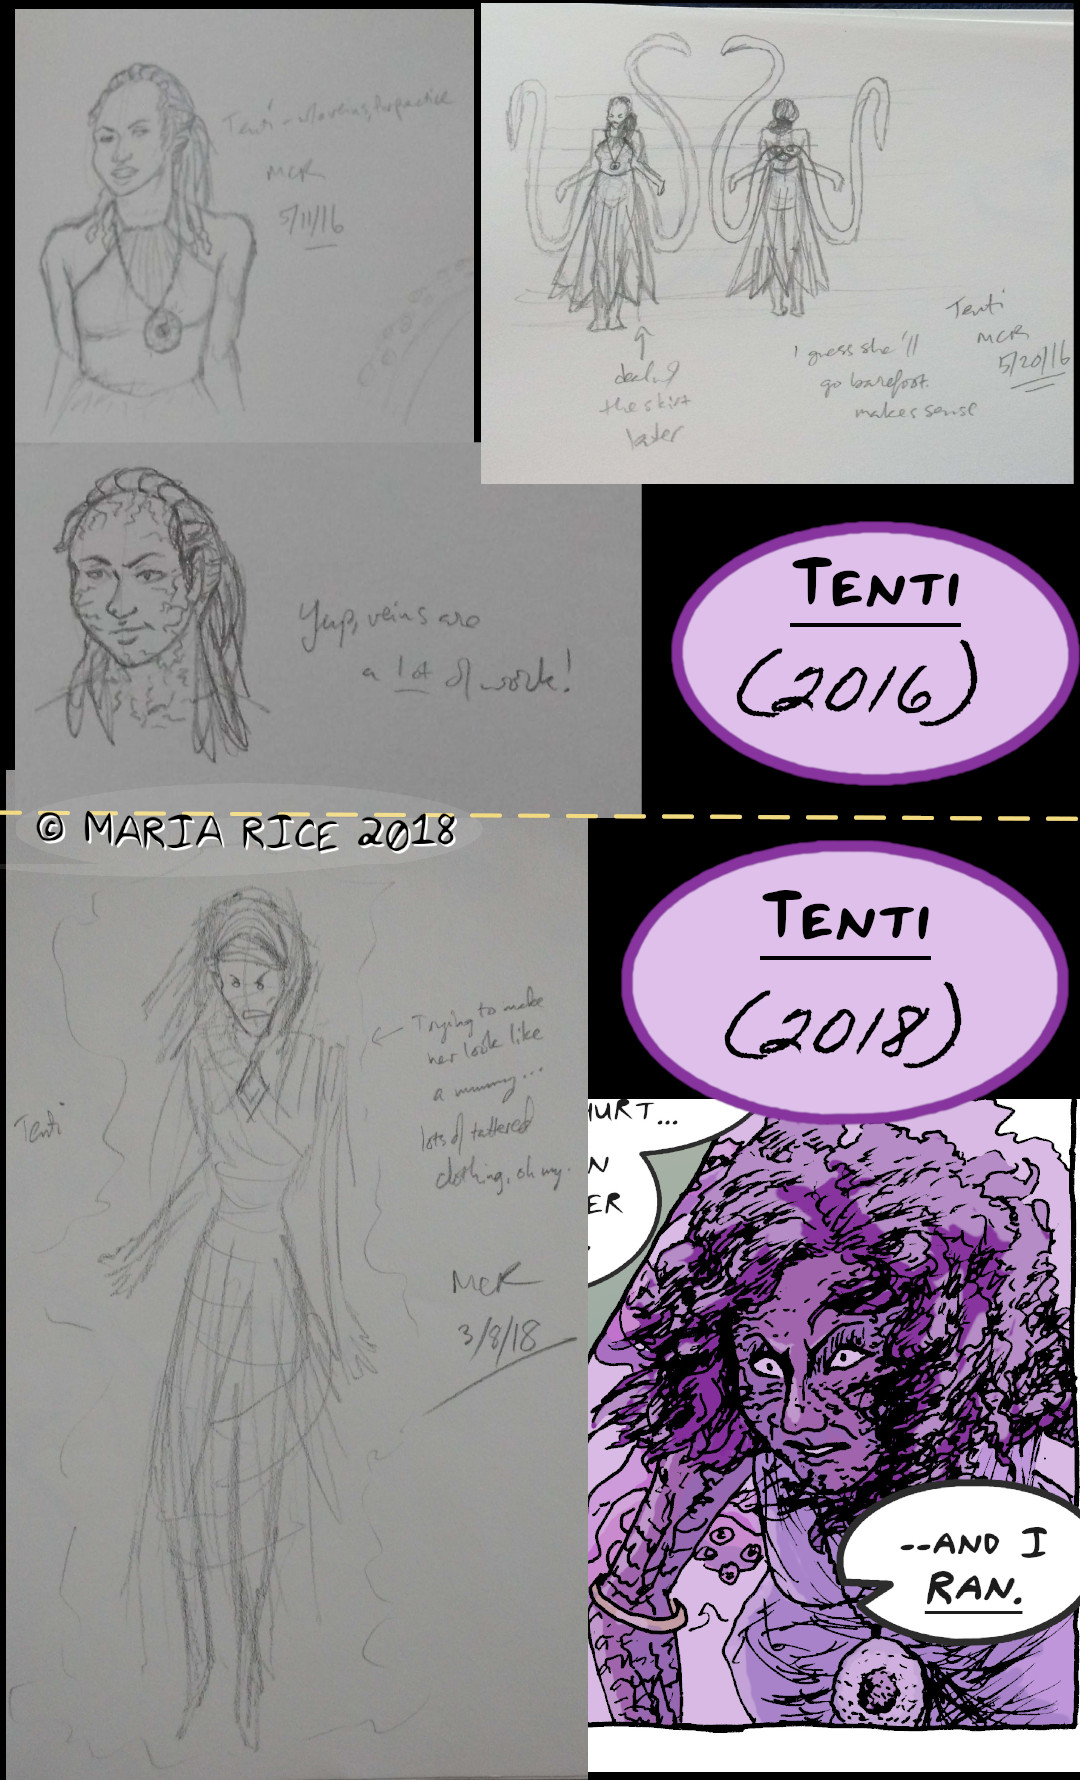 Tenti - w/o veins, for practice
MCR
5/11/16
Tenti
MCR
5/20/16
I guess she'll
go barefoot.
makes sense
the skirt
later
Yup, veins are
a lot of work!
TENTI
(2016)
© MARIA RICE 2018
TENTI
(2018)
Tenti
Trying to make
her look like
a mummy...
lots of tattered
clothing, oh my.
MCR
3/8/18
HURT...
N
ER
--AND I
RAN.